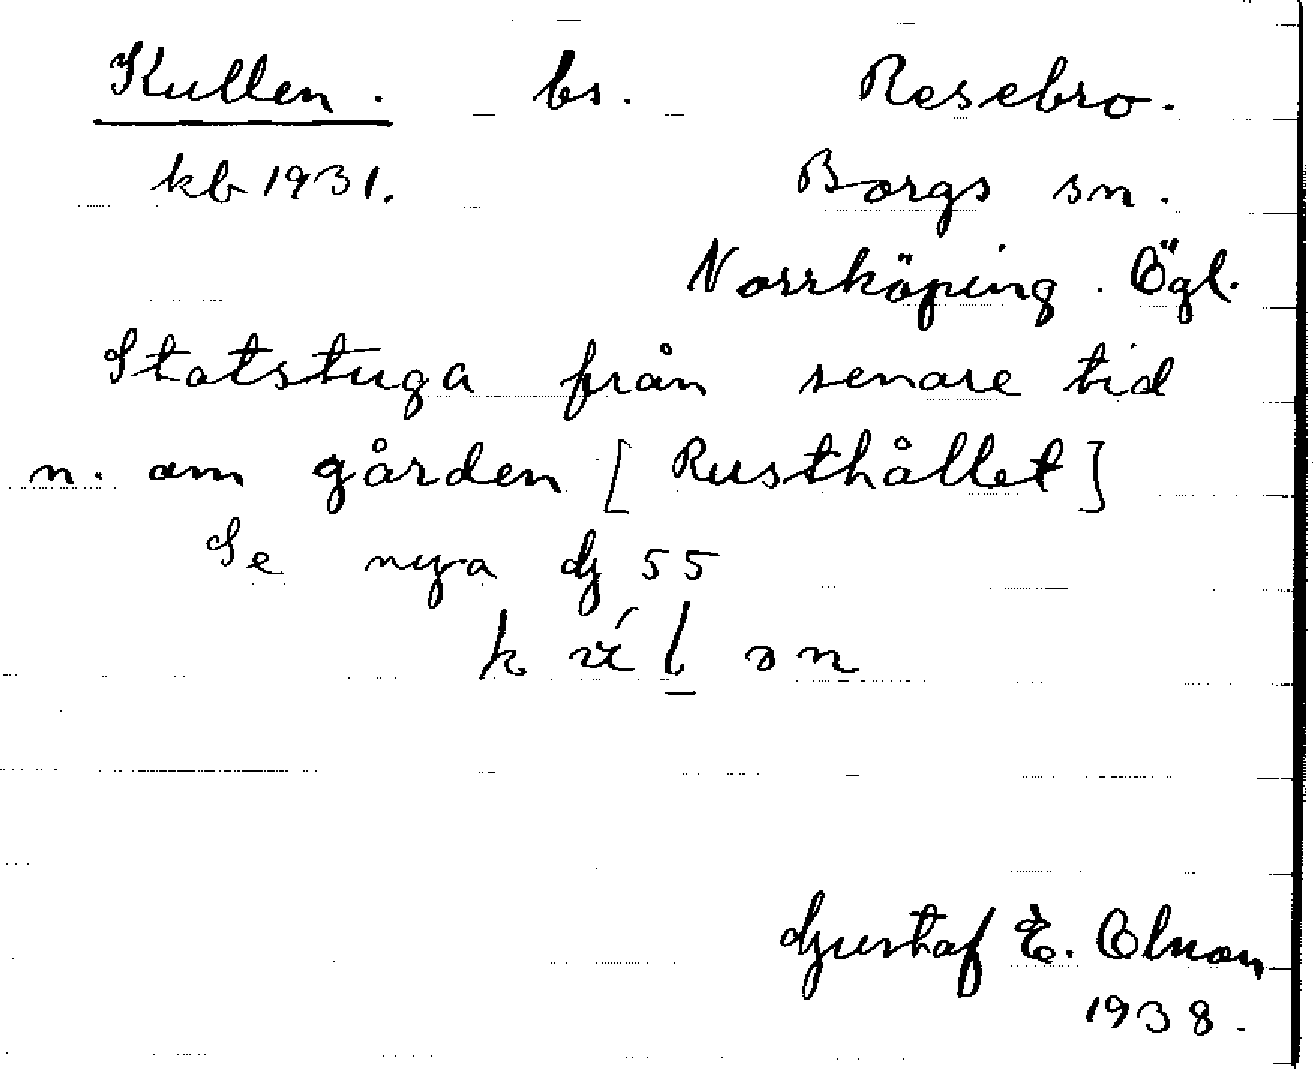 Kullen. bs. Resebro.
kb 1931. Borgs sn.
Norrköping. Ögl.
Statstuga från senare tid
n. om gården [Rusthållet]
Se nya G 55
Gustaf E. Olson
1938.